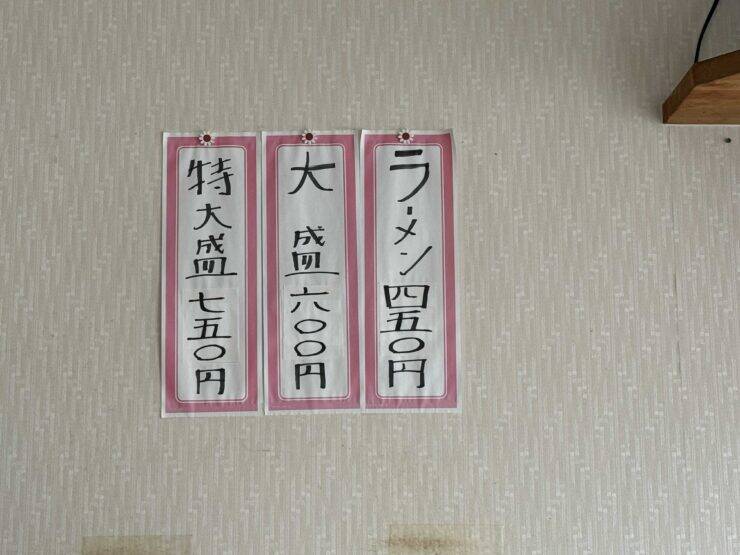 ラーメン四五〇円
大盛六〇〇円
特大盛七五〇円